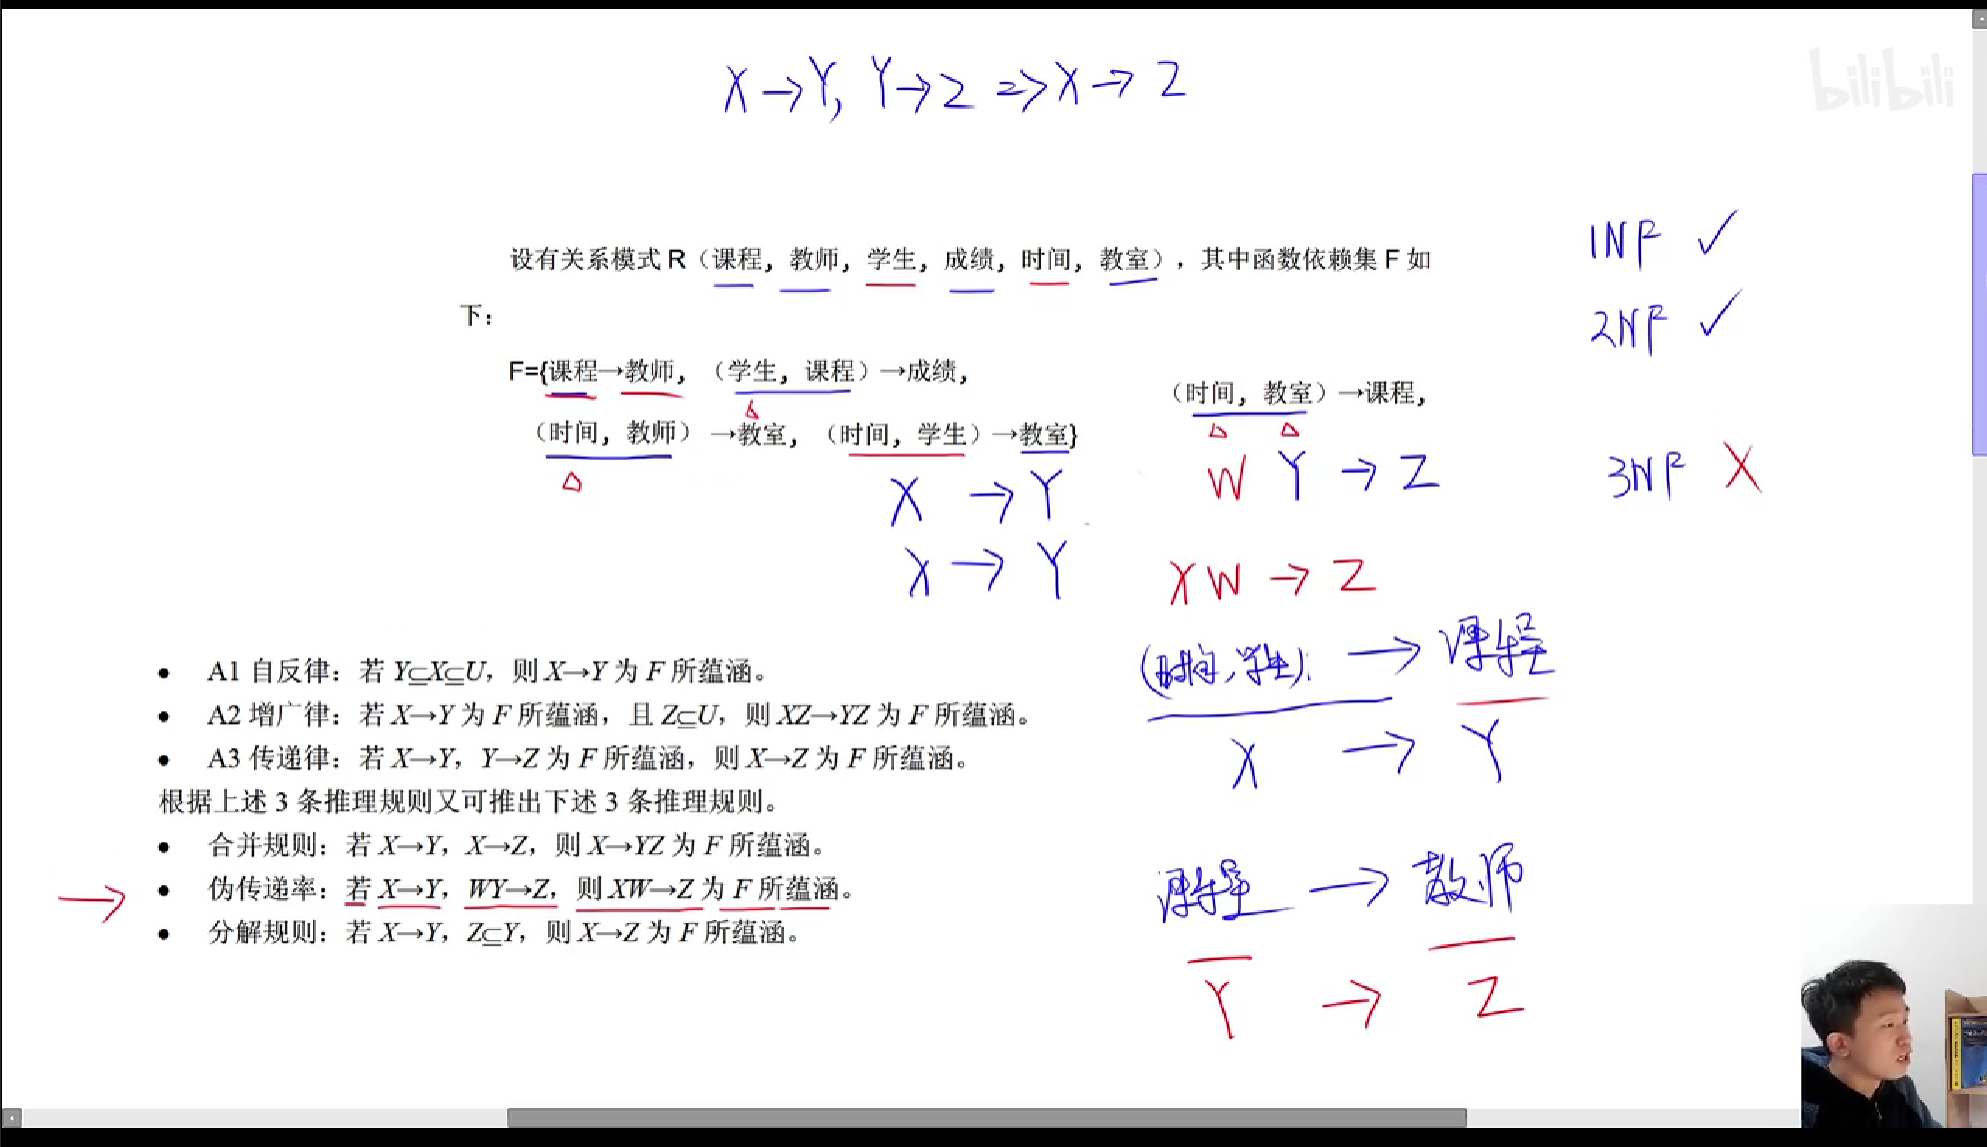 X→Y, Y→Z => X→Z
bilibili
设有关系模式 R（课程，教师，学生，成绩，时间，教室），其中函数依赖集 F 如
下：
1NF ✓
2NF ✓
3NF X
F={课程→教师，（学生，课程）→成绩，
（时间，教室）→课程，
（时间，教师）→教室，（时间，学生）→教室}
X → Y
W Y → Z
X → Y
XW → Z
(时间,学生) → 课程
X → Y
课程 → 教师
Y → Z
• A1 自反律：若 Y⊆X⊆U，则 X→Y 为 F 所蕴涵。
• A2 增广律：若 X→Y 为 F 所蕴涵，且 Z⊆U，则 XZ→YZ 为 F 所蕴涵。
• A3 传递律：若 X→Y，Y→Z 为 F 所蕴涵，则 X→Z 为 F 所蕴涵。
根据上述 3 条推理规则又可推出下述 3 条推理规则。
• 合并规则：若 X→Y，X→Z，则 X→YZ 为 F 所蕴涵。
→ • 伪传递率：若 X→Y，WY→Z，则 XW→Z 为 F 所蕴涵。
• 分解规则：若 X→Y，Z⊆Y，则 X→Z 为 F 所蕴涵。